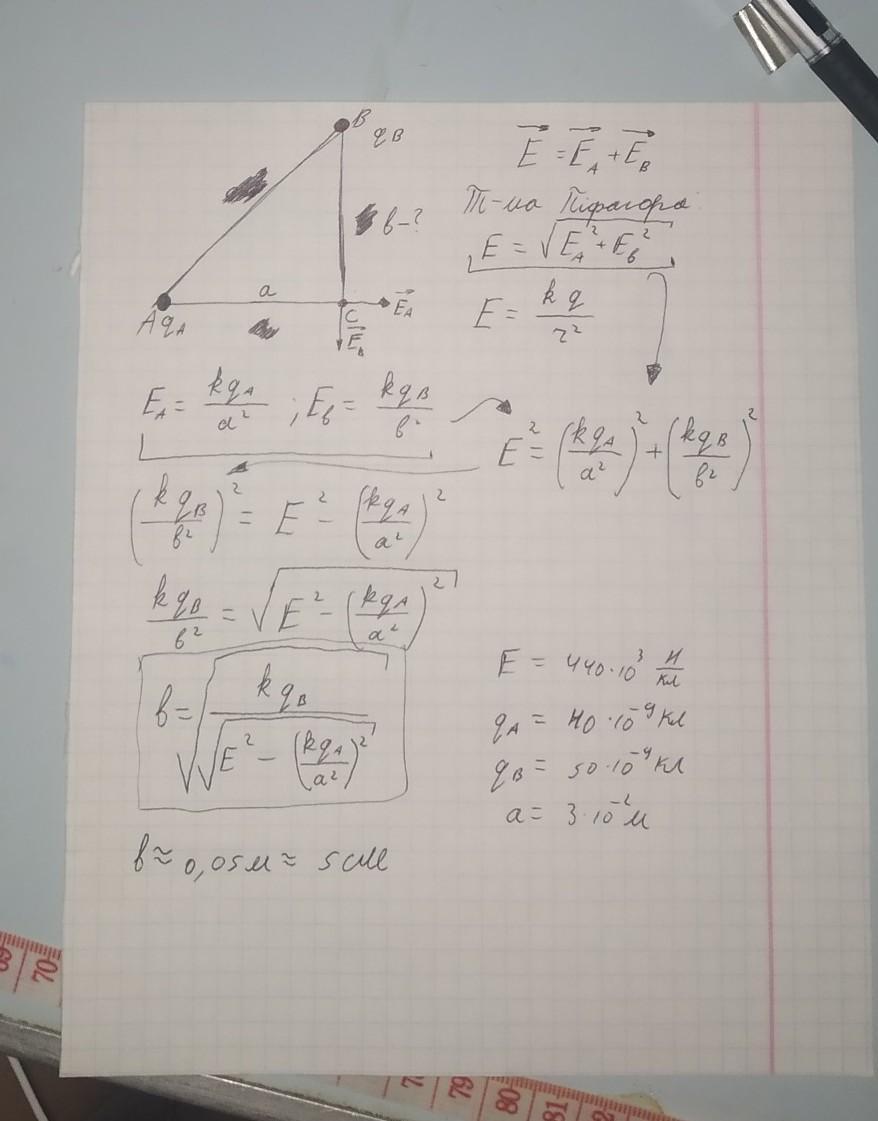 B
q_B
в-?
a
A q_A
C
E⃗_A
E⃗_B
E⃗ = E⃗_A + E⃗_B
Т-ма Пифагора
E = √(E_A² + E_в²)
E = kq/r²
E_A = kq_A/a² ; E_в = kq_B/в²
E² = (kq_A/a²)² + (kq_B/в²)²
(kq_B/в²)² = E² - (kq_A/a²)²
kq_B/в² = √(E² - (kq_A/a²)²)
в = √(kq_B/√(E² - (kq_A/a²)²))
E = 440·10³ Н/кл
q_A = 40·10⁻⁹ Кл
q_B = 50·10⁻⁹ Кл
a = 3·10⁻² м
в ≈ 0,05м ≈ 5 см
70
79
80
81